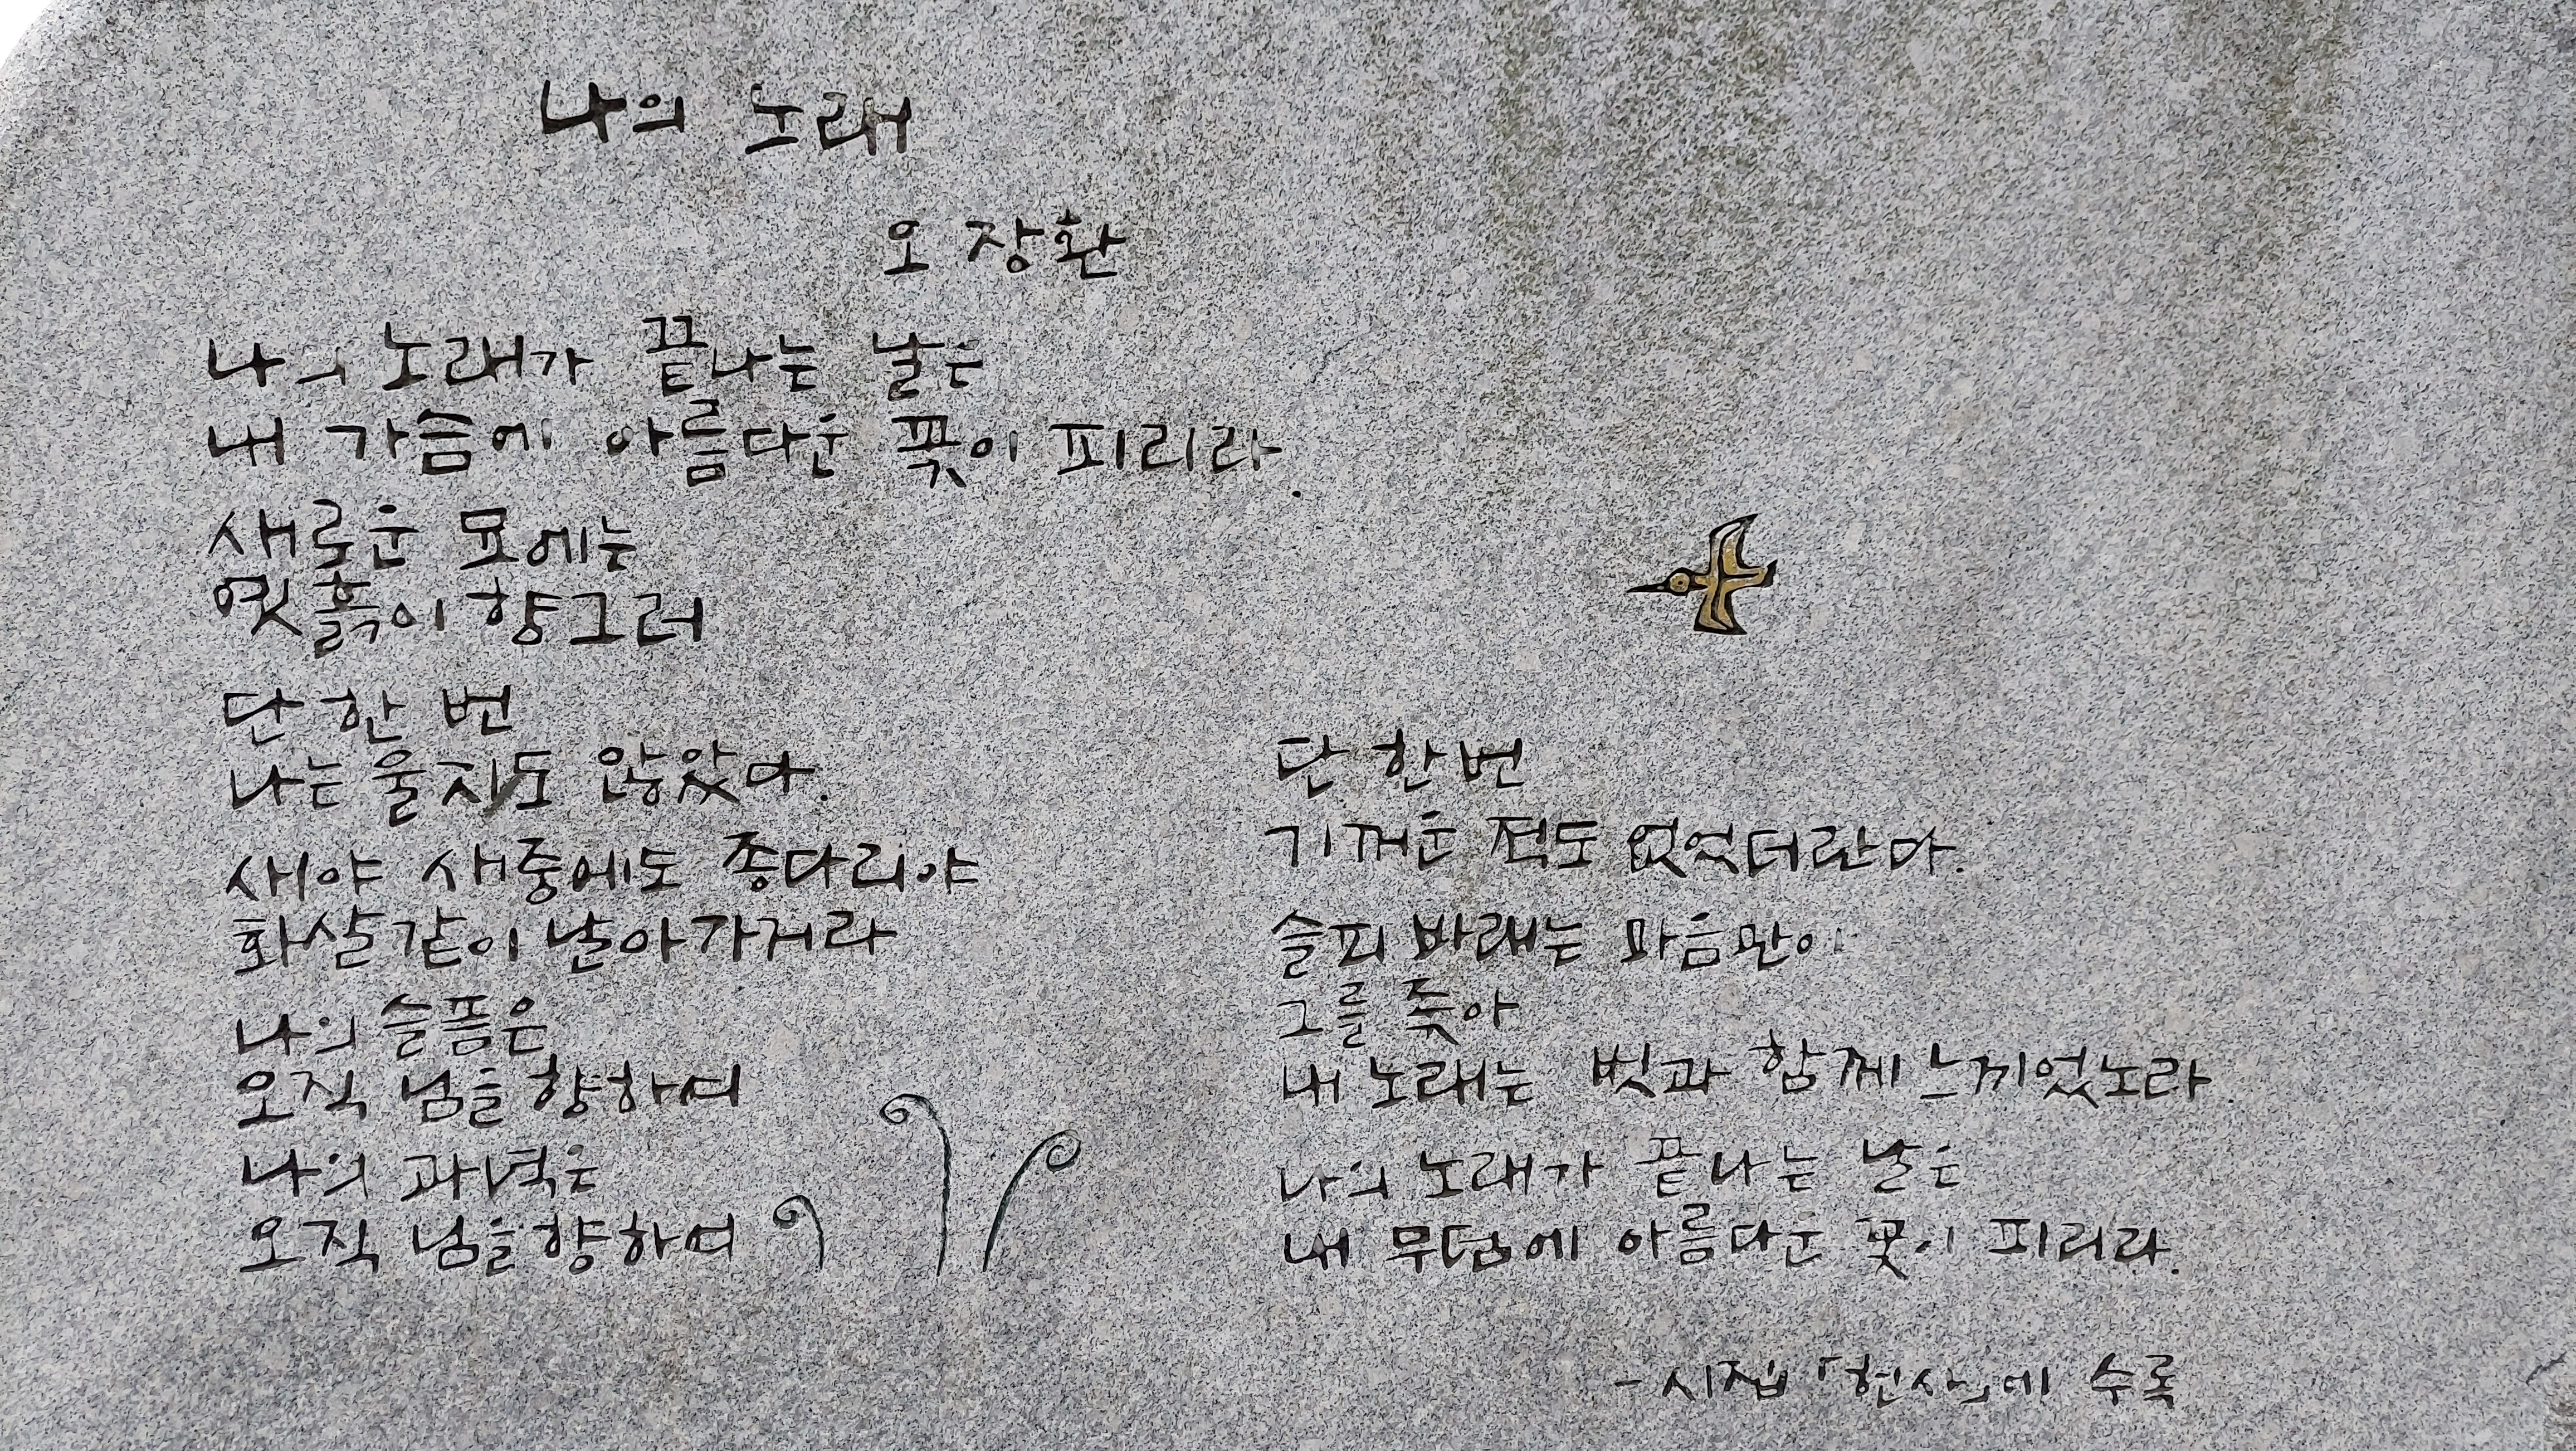 나의 노래
오장환
나의 노래가 끝나는 날은
내 가슴에 아름다운 꽃이 피리라.
새로운 묘에는
옛흙이 향그러
단 한 번
나는 울지도 않았다.
새야 새중에도 종다리야
화살같이 날아가거라
나의 슬픔은
오직 님을 향하여
나의 과녁은
오직 님을 향하여
단 한번
기꺼운 적도 없었더란다.
슬피 바래는 마음만이
그를 좇아
내 노래는 벗과 함께 느끼었노라.
나의 노래가 끝나는 날은
내 무덤에 아름다운 꽃이 피리라.
- 시집 「헌사」에 수록